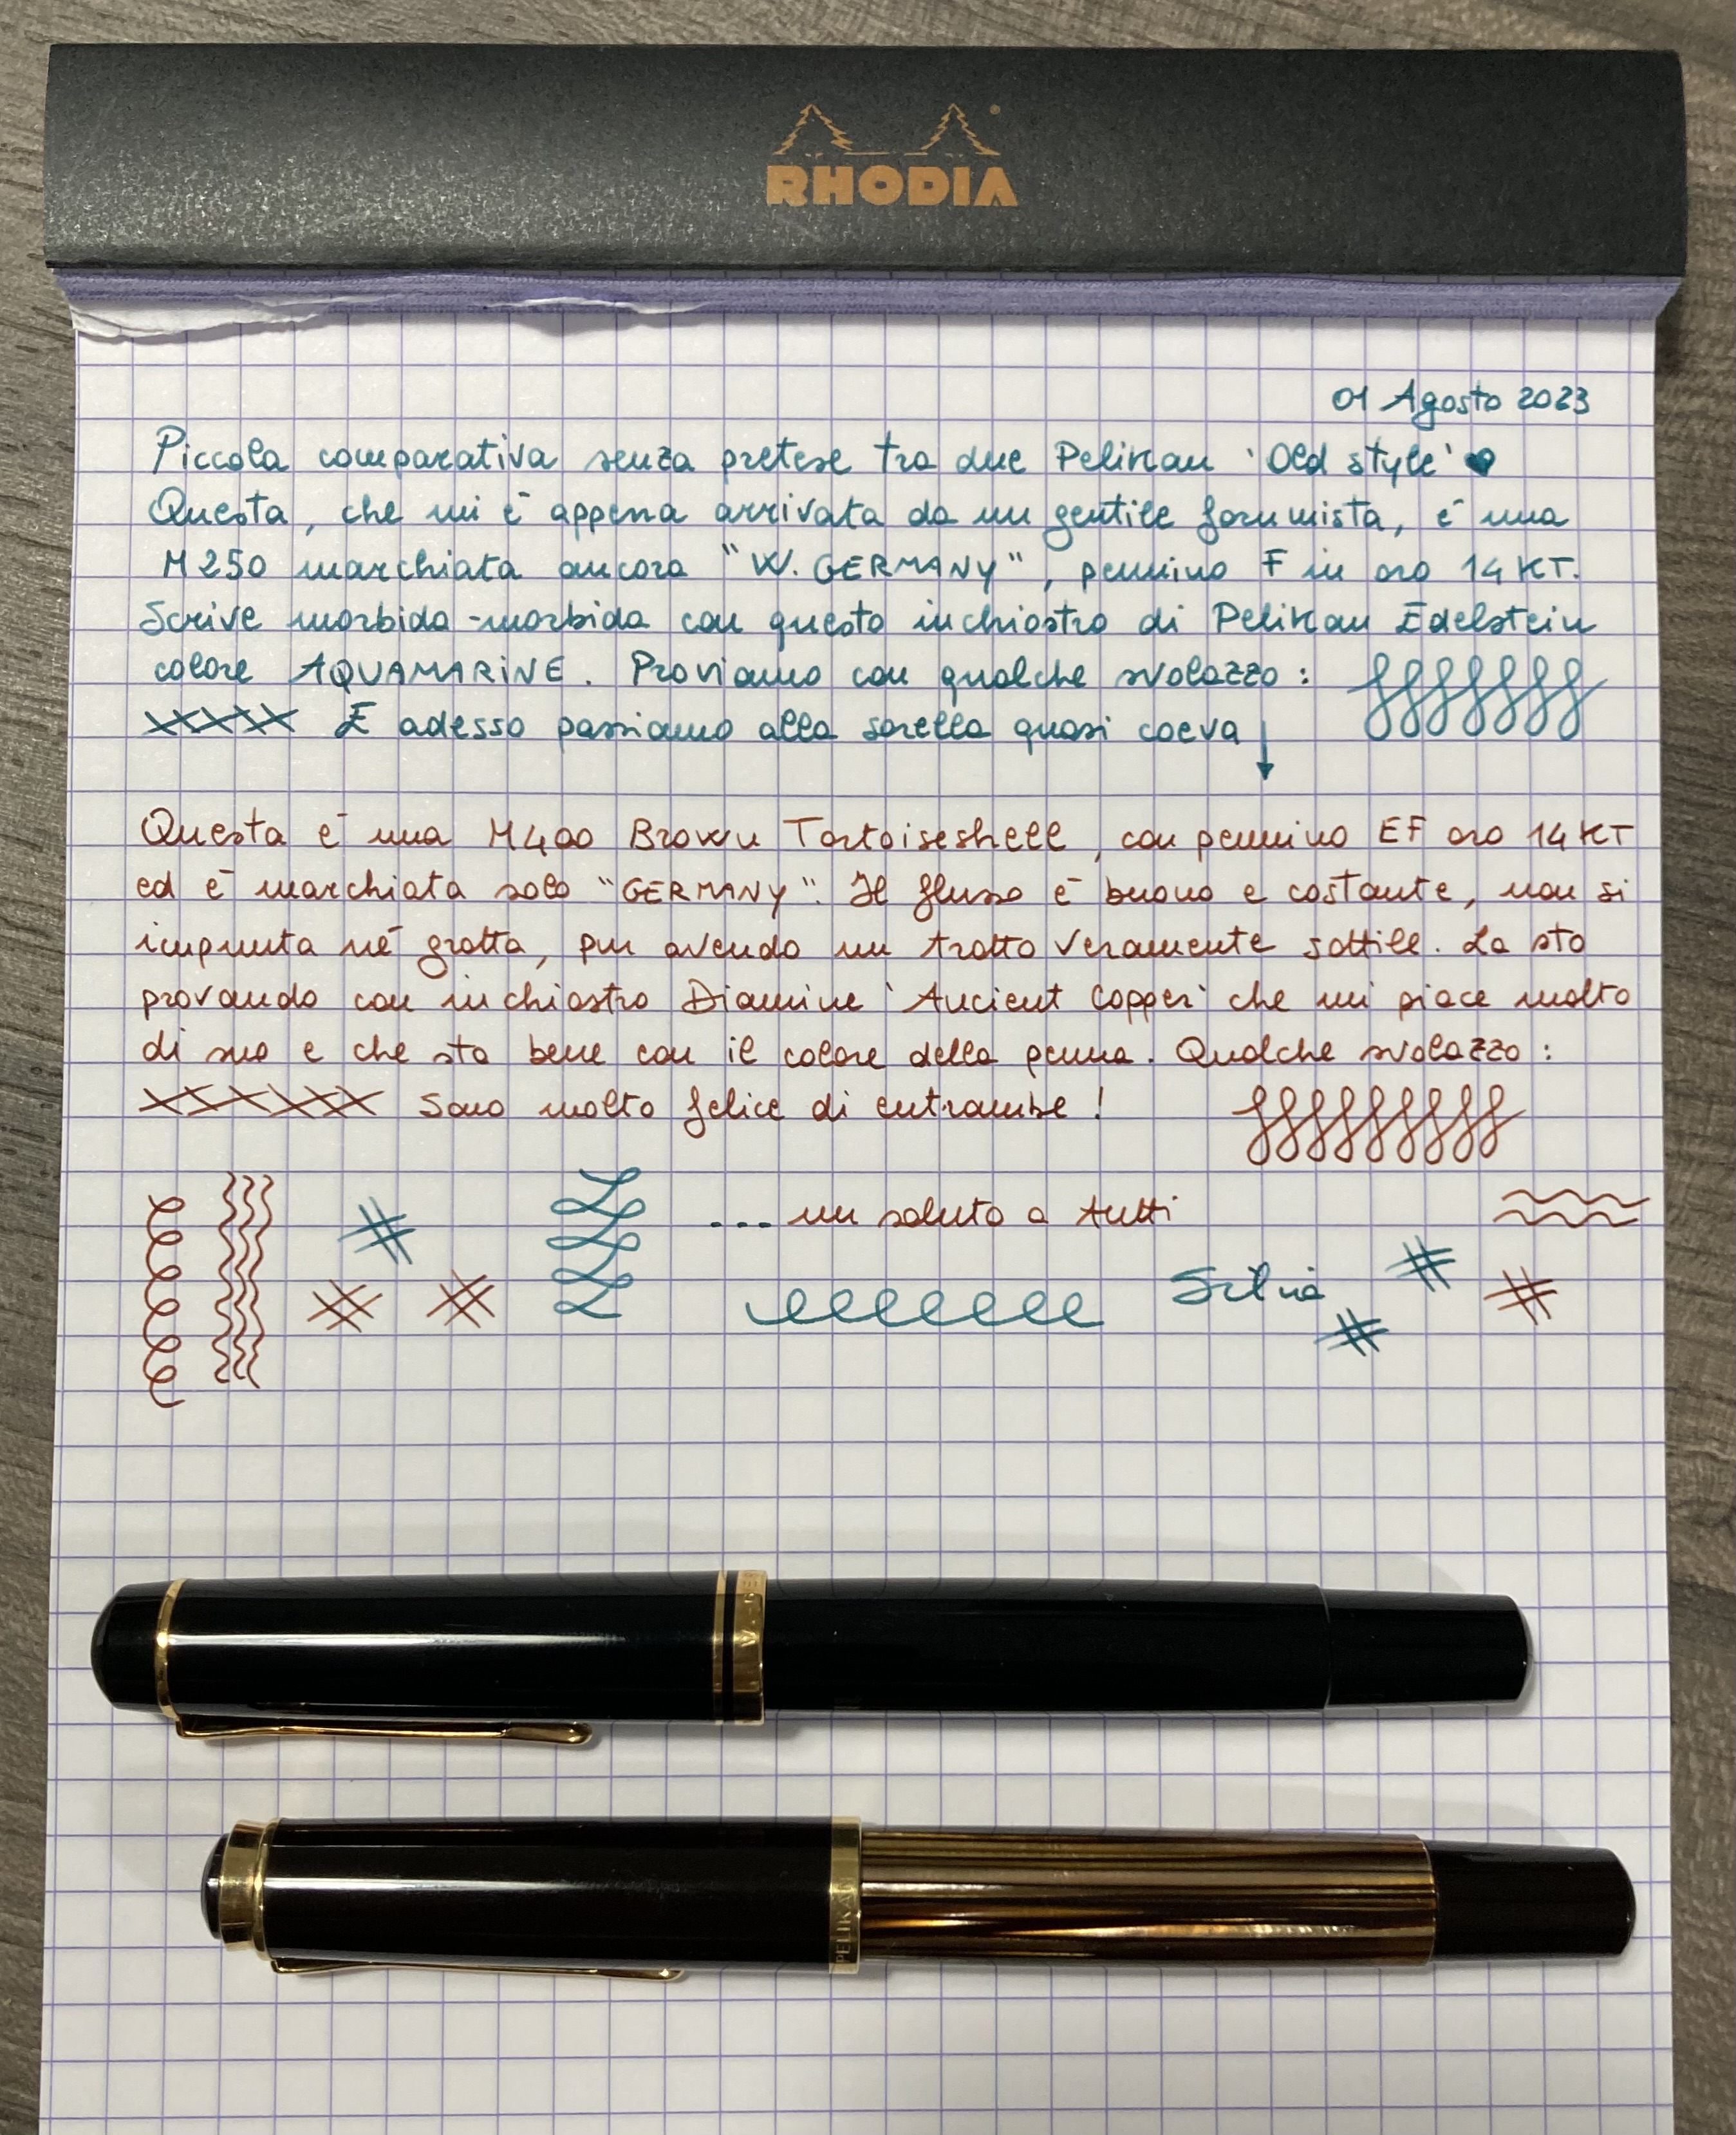 RHODIA
01 Agosto 2023
Piccola comparativa senza pretese tra due Pelikan 'Old style'
Questa, che mi è appena arrivata da un gentile forumista, è una
M250 marchiata ancora "W. GERMANY", pennino F in oro 14 KT.
Scrive morbida-morbida con questo inchiostro di Pelikan Edelstein
colore AQUAMARINE. Proviamo con qualche svolazzo:
E adesso passiamo alla sorella quasi coeva
Questa è una M400 Brown Tortoiseshell, con pennino EF oro 14 KT
ed è marchiata solo "GERMANY". Il flusso è buono e costante, non si
impunta né gratta, pur avendo un tratto veramente sottile. La sto
provando con inchiostro Diamine 'Ancient Copper' che mi piace molto
di suo e che sta bene con il colore della penna. Qualche svolazzo:
Sono molto felice di entrambe!
... un saluto a tutti
Silvia
PELIKAN